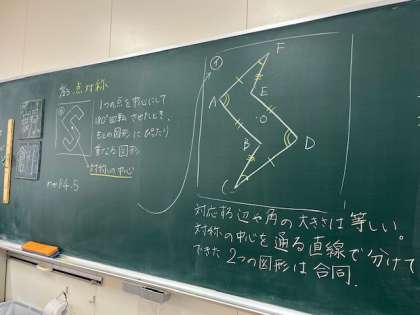 点対称
1つの点を中心にして
180°回転させたとき、
もとの図形にぴったり
重なる図形
対称の中心
P14.5
①
F
A
E
O
B
D
C
対応する辺や角の大きさは等しい。
対称の中心を通る直線で分けて
できた2つの図形は合同.